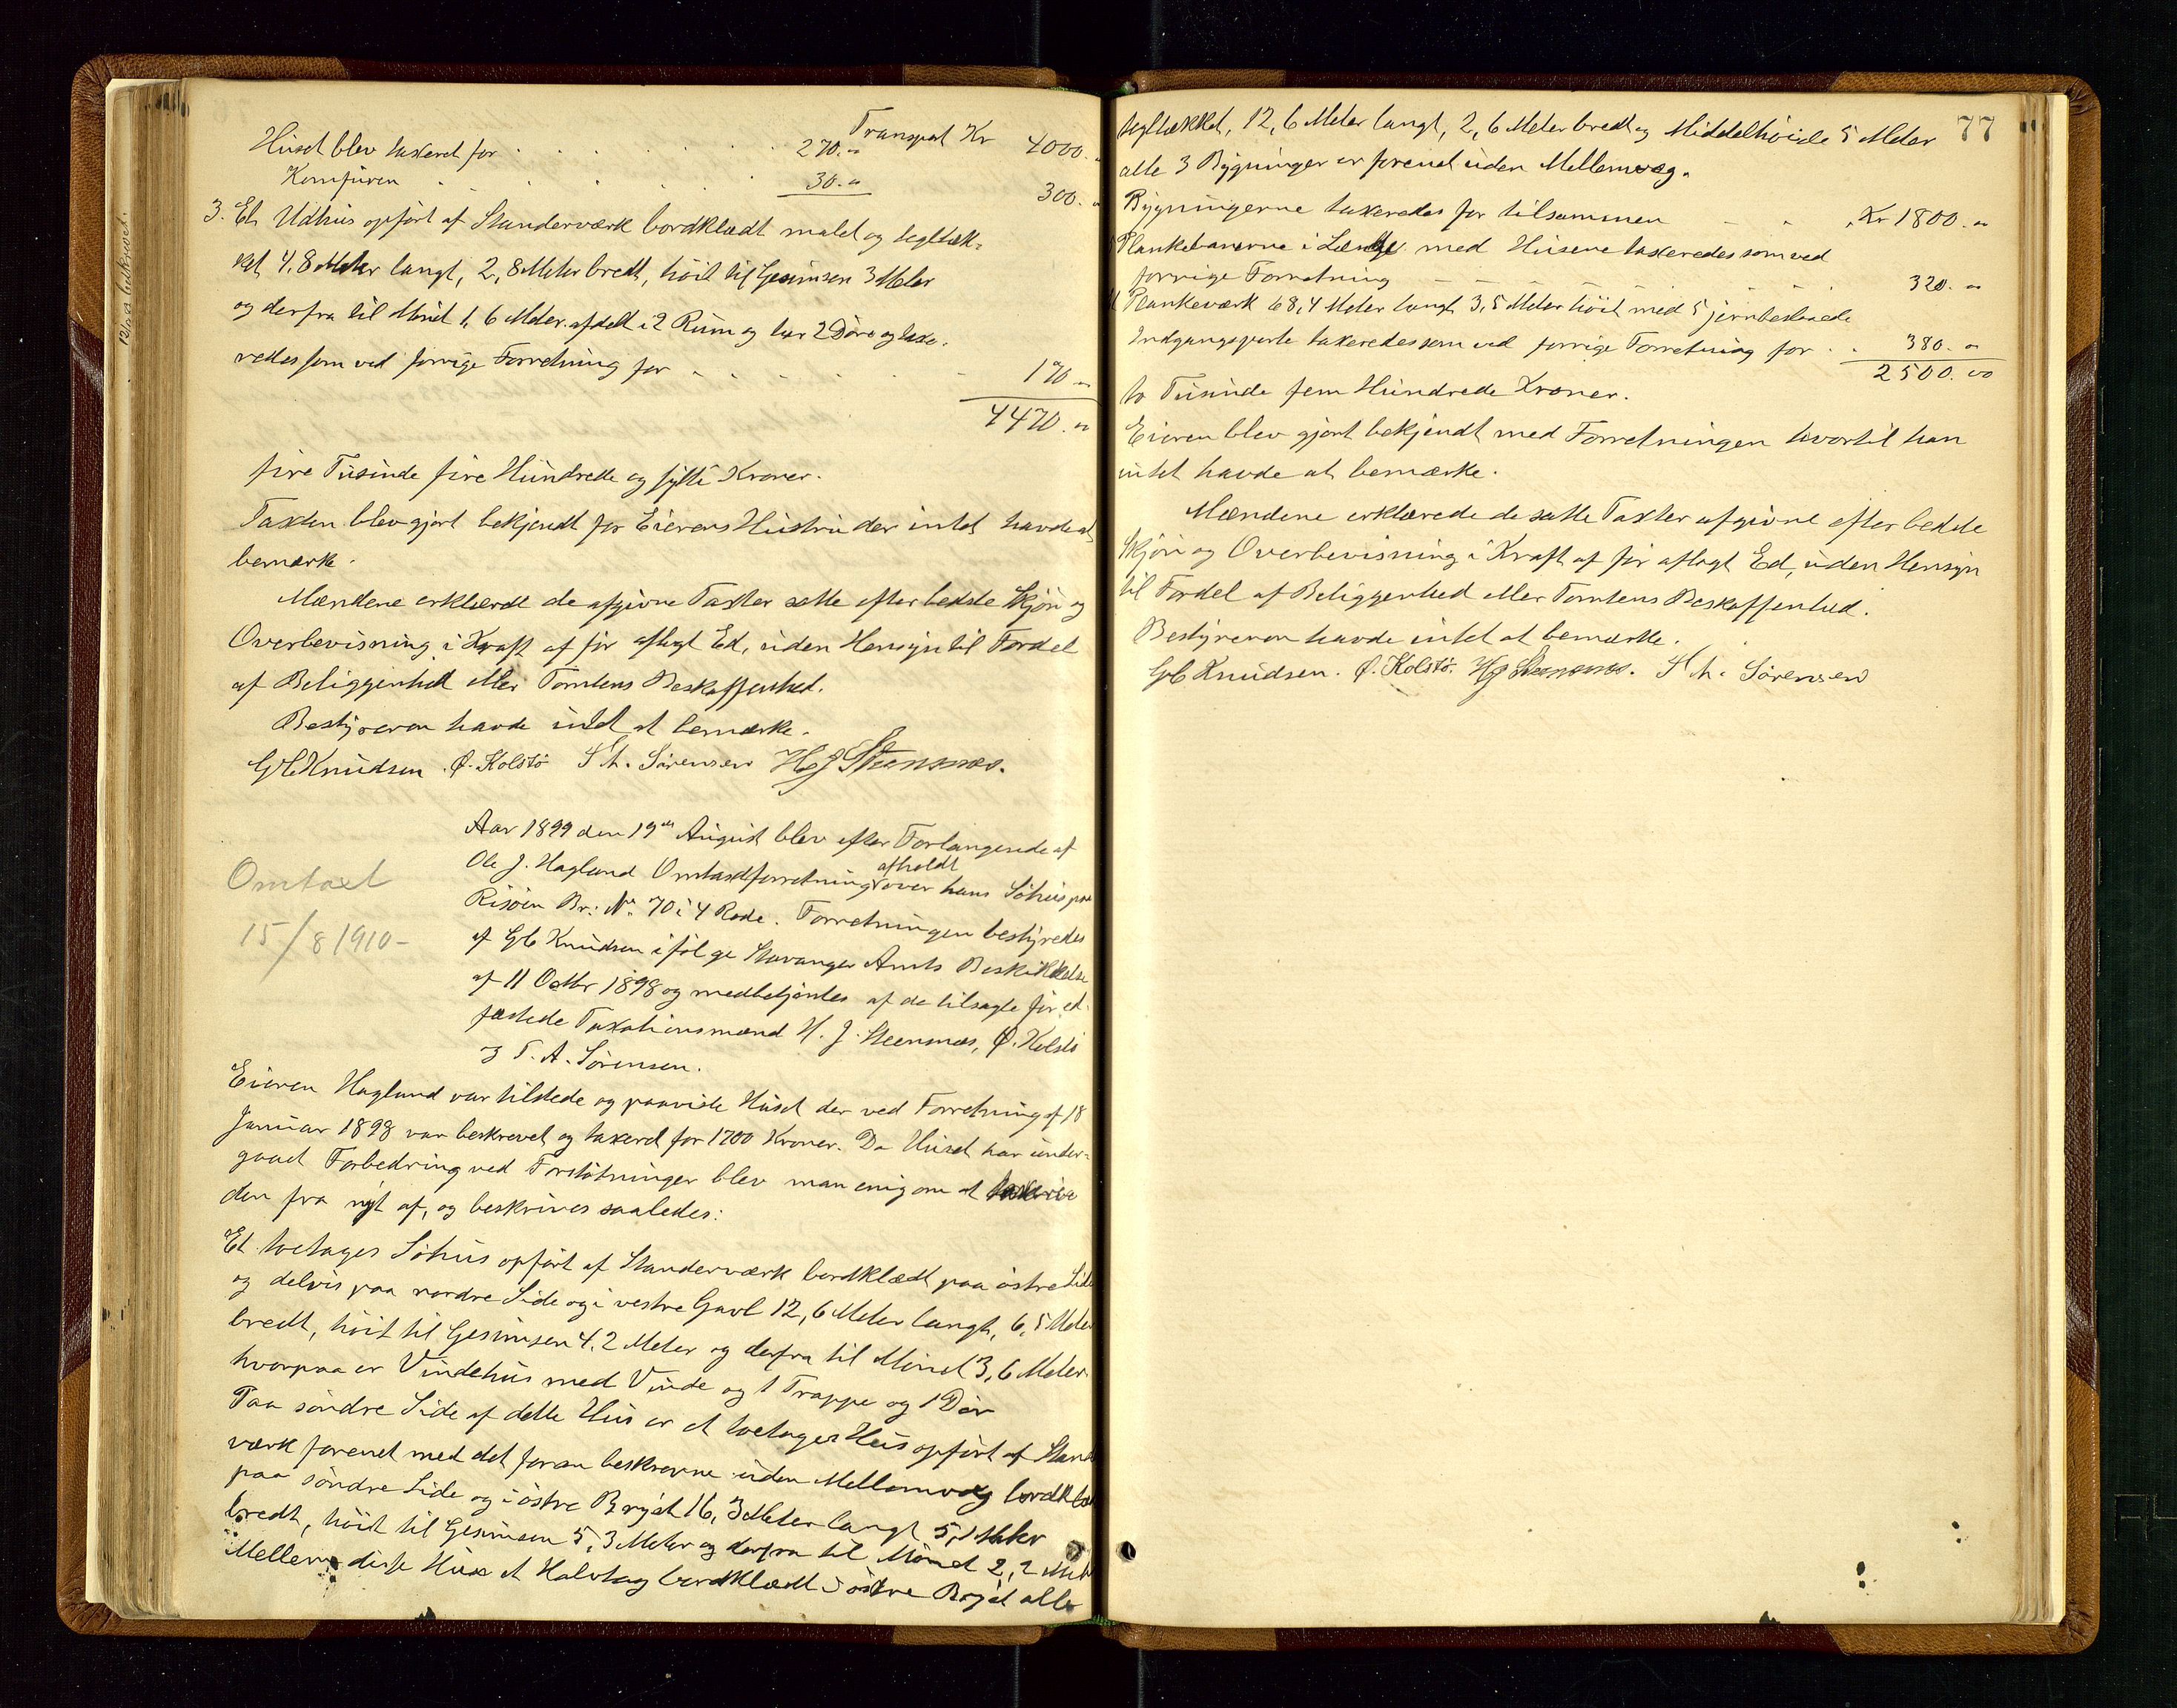 Transport Kr 4000. "
Huset blev taxeret for . . . . . . 270. "
Komfuren . . . . . . 30. " 300. "
3. Et Udhus opført af Standerværk bordklædt malet og tegltæk-
ket 4,8 Meter langt, 2,8 Meter bredt, høit til Gesimsen 3 Meter
og derfra til Mønet 1,6 Meter afdelt i 2 Rum og har 2 Døre og taxe-
redes som ved forrige Forretning for . . . . . . 170 "
4470. "
fire Tusinde fire Hundrede og sytti Kroner.
Taxten blev gjort bekjendt for Eierens Hustru der intet havde at
bemærke.
Mændene erklærede de afgivne Taxter satte efter bedste Skjøn og
Overbevisning i Kraft af før aflagt Ed, uden Hensyn til Fordel
af Beliggenhed eller Tomtens Beskaffenhed.
Bestyreren havde intet at bemærke.
Knudsen. Ø. Kolstø T. A. Sørensen H J Steensnæs.
Aar 1899 den 19de August blev efter Forlangende af
Ole J. Haglund Omtaxtforretning afholdt over hans Søhus paa
Risøen Br: No. 70 i 4 Rode. Forretningen bestyredes
af Knudsen ifølge Stavanger Amts Beskikkelse
af 11 Octbr 1898 og medbetjentes af de tilsagte før ed-
fæstede Taxationsmænd H. J. Steensnæs, Ø. Kolstø
og T. A. Sørensen.
Omtaxt
15/8 1910-
Eieren Haglund var tilstede og paaviste Huset der ved Forretning af 18
Januar 1898 var beskrevet og taxeret for 1700 Kroner. Da Huset har under-
gaaet Forbedring ved Forstøtninger blev man enig om at taxere
den fra nyt af, og beskrives saaledes:
Et toetages Søhus opført af Standerværk bordklædt paa østre Side
og delvis paa nordre Side og i vestre Gavl 12,6 Meter langt, 6,5 Meter
bredt, høit til Gesimsen 4,2 Meter og derfra til Mønet 3,6 Meter
hvorpaa er Vindehus med Vinde og 1 Trappe og 1 Dør
Paa søndre Side af dette Hus er et toetages Hus opført af Stander
værk forenet med det foran beskrevne uden Mellemvæg bordklædt
paa søndre Side og i østre Bryst 16,3 Meter langt 5,1 Meter
bredt, høit til Gesimsen 5,3 Meter og derfra til Mønet 2,2 Meter
Mellem disse Huse et Halvtag bordklædt i østre Bryst alle
77
tegltækket, 12,6 Meter langt, 2,6 Meter bredt og Middelhøide 5 Meter
alle 3 Bygninger er forenet uden Mellemvæg.
Bygningerne taxeredes for tilsammen - - . Kr 1800. "
Plankebanerne i Længde med Husene taxeredes som ved
forrige Forretning - - - - 320. "
Plankeværk 68,4 Meter langt 3,5 Meter høit med 5 jernbeslaaede
Indgangsporte taxeredes som ved forrige Forretning for . . 380. "
2500. 00
to Tusinde fem Hundrede Kroner.
Eieren blev gjort bekjendt med Forretningen hvortil han
intet havde at bemærke.
Mændene erklærede de satte Taxter afgivne efter bedste
Skjøn og Overbevisning i Kraft af før aflagt Ed, uden Hensyn
til Fordel af Beliggenhed eller Tomtens Beskaffenhed.
Bestyreren havde intet at bemærke.
Knudsen. Ø. Kolstø. H J Steensnæs. T. A. Sørensen